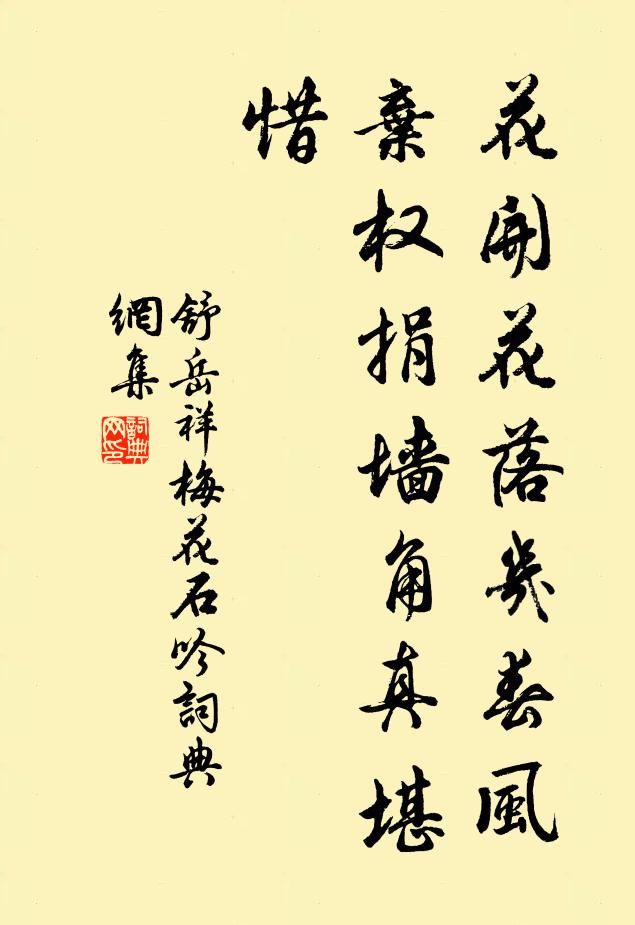 花開花落幾春風
棄权捐墙角真堪
惜
舒岳祥梅花石吟詞典
網集
詞典
网印